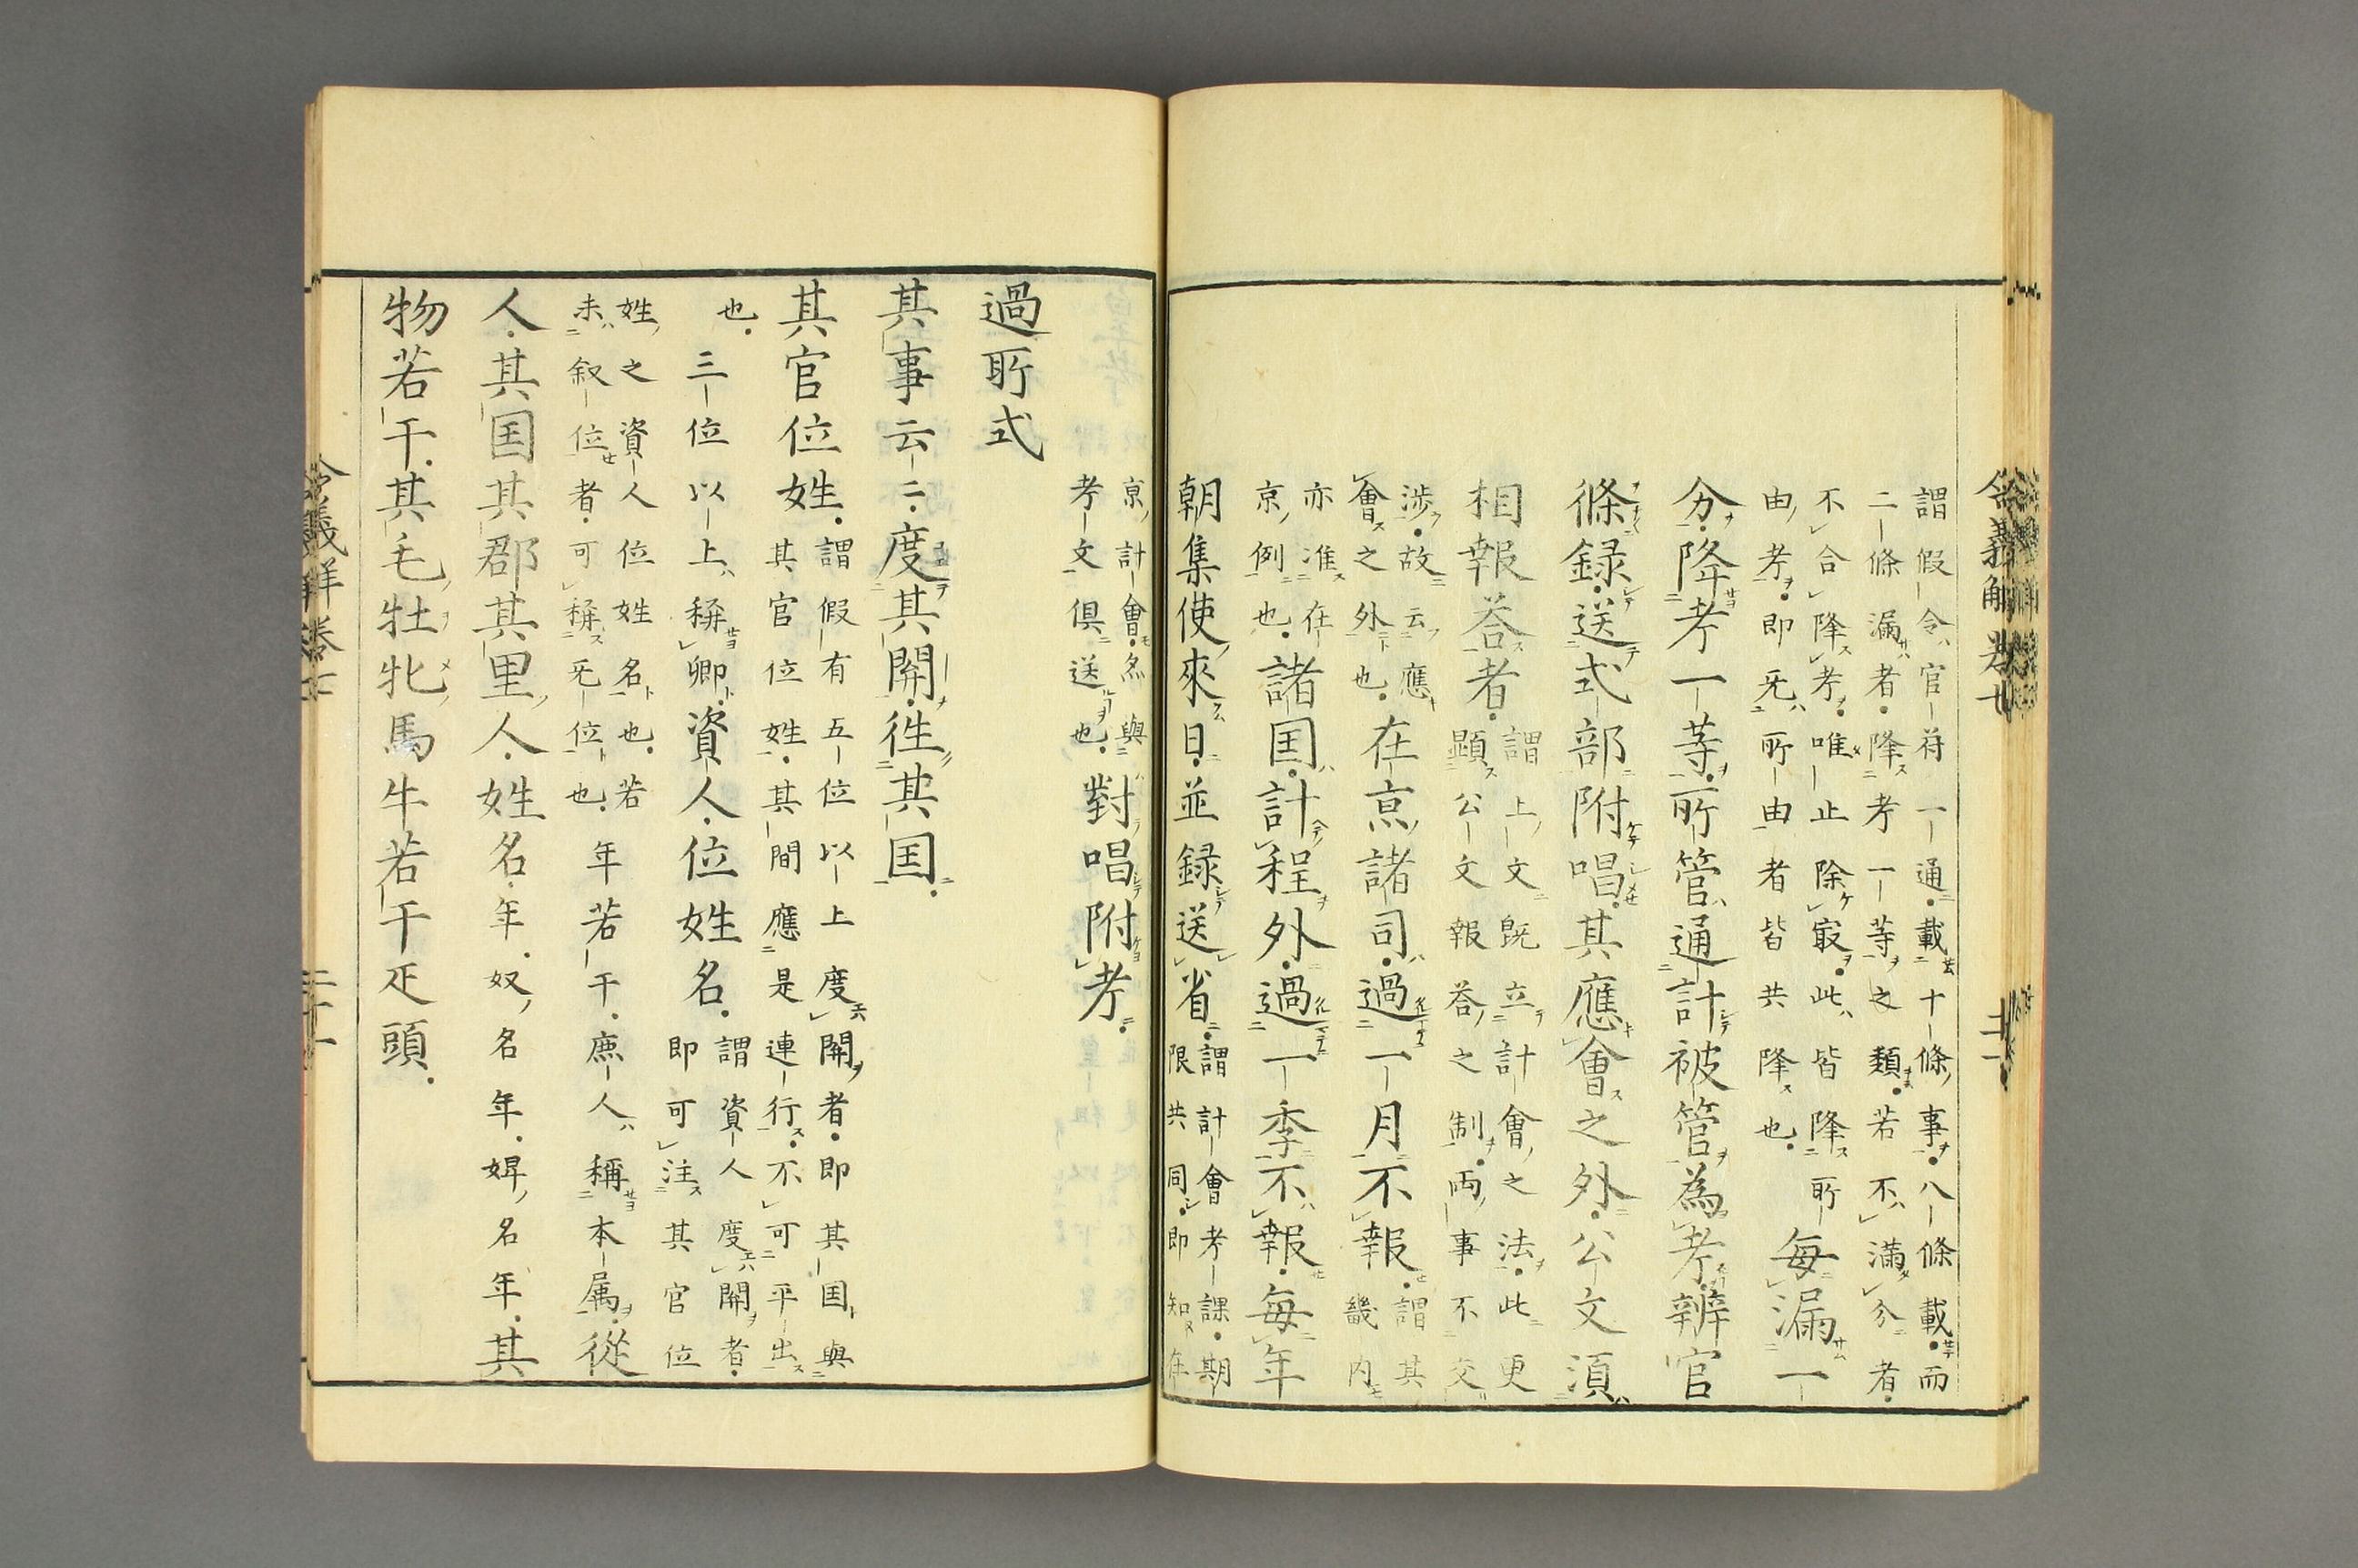 令義解卷七
二十一
謂假令官符一通載十條事八條載而
二條漏者降考一等之類若不滿分者
不合降考唯止除冣此皆降所
由考即旡所由者皆共降也
每漏一
分降考一等所管通計被管為考辨官
條録送式部附唱其應會之外公文湏
相報荅者
謂上文既立計會之法此更
顯公文報荅之制両事不交
渉故云應
會之外也
在亰諸司過一月不報
謂其
畿内
亦准在
亰例也
諸囯計程外過一季不報每年
朝集使來日並録送省
謂計會考課期
限共同即知在
亰計會亦與
考文倶送也
對唱附考
過所式
其事云云度其關徃其囯
其官位姓
謂假有五位以上度關者即其囯與
其官位姓其間應是連行不可平出
也
三位以上稱卿資人位姓名
謂資人度關者
即可注其官位
姓之資人位姓名也若
未叙位者可稱旡位也
年若干庶人稱本属從
人其囯其郡其里人姓名年奴名年婢名年其
物若干其毛牡牝馬牛若干疋頭
令義解卷七
二十一